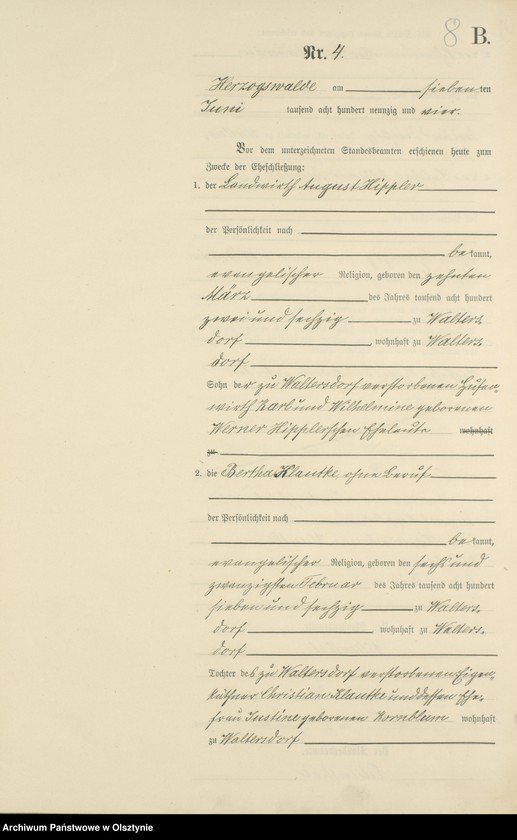 8 B.
Nr. 4.
Herzogswalde am siebenten
Juni tausend acht hundert neunzig und vier.
Vor dem unterzeichneten Standesbeamten erschienen heute zum
Zwecke der Eheschließung:
1. der Landwirth August Hippler
der Persönlichkeit nach
bekannt,
evangelischer Religion, geboren den zehnten
März des Jahres tausend acht hundert
zwei und sechzig zu Walters
dorf, wohnhaft zu Walters
dorf
Sohn der zu Waltersdorf verstorbenen Hufen
wirth Karl und Wilhelmine geborenen
Werner Hipplerschen Eheleute wohnhaft
zu
2. die Bertha Klautke, ohne Beruf
der Persönlichkeit nach
bekannt,
evangelischer Religion, geboren den sechs und
zwanzigsten Februar des Jahres tausend acht hundert
sieben und sechzig zu Walters
dorf wohnhaft zu Walters
dorf
Tochter des zu Waltersdorf verstorbenen Eigen
käthner Christian Klautke und dessen Ehe
frau Justine geborenen Kornblum wohnhaft
zu Waltersdorf
Archiwum Państwowe w Olsztynie